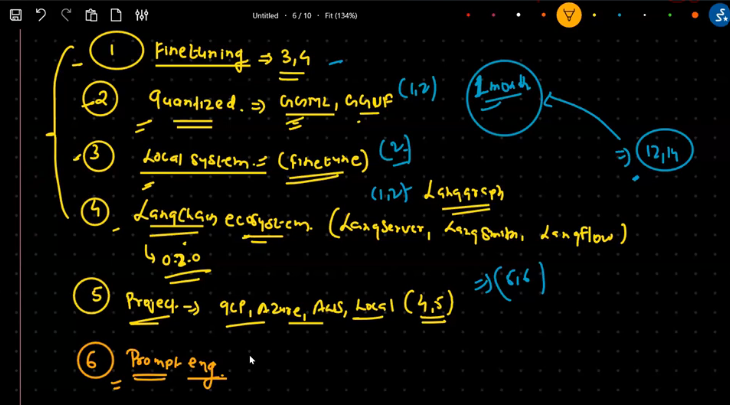 Untitled • 6 / 10 • Fit (134%)
1 Finetuning ⇒ 3,4 -
2 Quantized. ⇒ GGML, GGUF (1,2)
1 month
3 Local system = (finetune) (2-)
⇒ 12,14
(1,2) Langgraph
4 LangChain ecosystem. (Langserver, Langsmith, Langflow)
↳ 0.2.0
5 Project → GCP, Azure, AWS, Local (4,5) ⇒ (5,6)
6 Prompt eng.